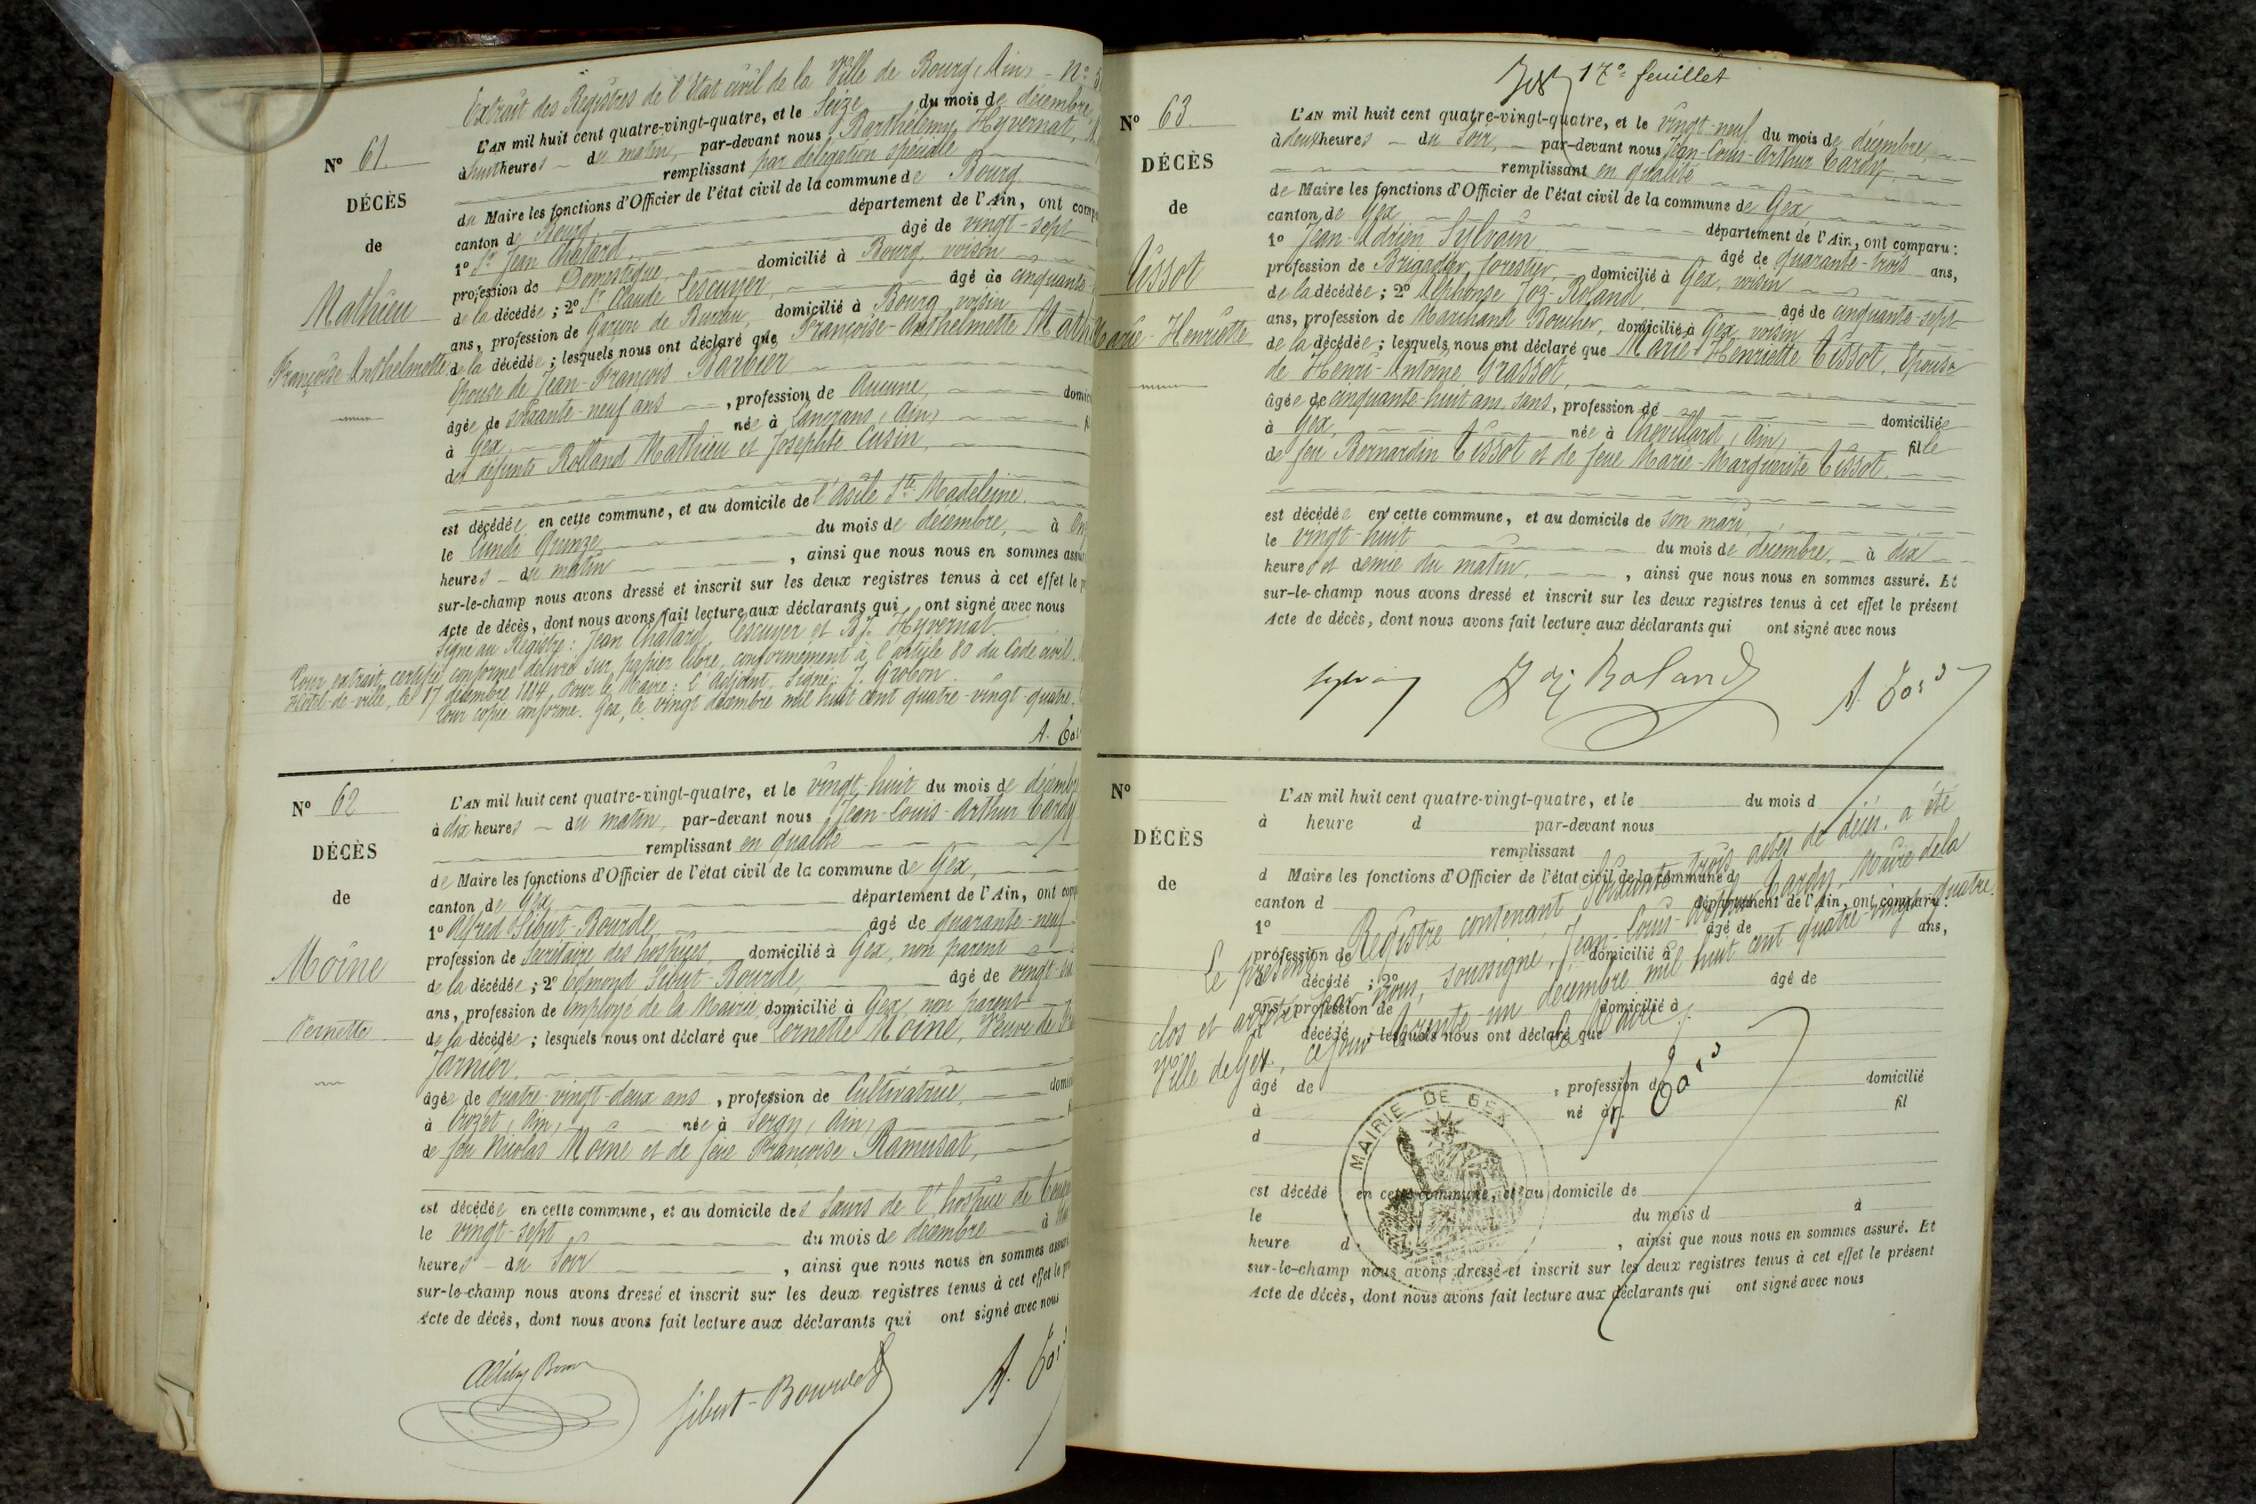 Extrait des Registres de l'Etat civil de la Ville de Bourg (Ain) - N°
N° 61
DÉCÈS
de
Mathieu
Françoise Anthelmette
L'AN mil huit cent quatre-vingt-quatre, et le Seize du mois de décembre,
à huit heures - du matin, par-devant nous, Barthélemy Hyvernat,
remplissant par délégation spéciale
du Maire les fonctions d'Officier de l'état civil de la commune de Bourg
canton de Bourg département de l'Ain, ont comp
1° Sr Jean Chatard, âgé de vingt-sept
profession de Domestique domicilié à Bourg, voisin
de la décédée; 2° Sr Claude Lescuyer, âgé de cinquante
ans, profession de Garçon de Bureau, domicilié à Bourg, voisin
de la décédée; lesquels nous ont déclaré que Françoise-Anthelmette Math
épouse de Jean-François Barbier
âgée de soixante-neuf ans, profession de Aucune, domici
à Gex née à Lancrans (Ain)
des défunts Rolland Mathieu et Josephte Cusin,
est décédée en cette commune, et au domicile de l'Asile Ste Madeleine.
le lundi Quinze du mois de décembre, à
heures - du matin, ainsi que nous nous en sommes assu
sur-le-champ nous avons dressé et inscrit sur les deux registres tenus à cet effet le p
Acte de décès, dont nous avons fait lecture aux déclarants qui ont signé avec nous
Signé au Registre: Jean Chatard, Lescuyer et B. Hyvernat.
Pour extrait certifié conforme délivré sur papier libre, conformément à l'article 80 du Code civil.
Hôtel-de-ville, le 17 décembre 1884. Pour le Maire: l'Adjoint. Signé: J. Grobon.
Pour copie conforme. Gex, le vingt décembre mil huit cent quatre-vingt-quatre.
N° 62
DÉCÈS
de
Moine
Pernette
L'AN mil huit cent quatre-vingt-quatre, et le vingt-huit du mois de décemb
à dix heures - du matin, par-devant nous Jean-Louis-Arthur
remplissant en qualité
de Maire les fonctions d'Officier de l'état civil de la commune de Gex,
canton de Gex département de l'Ain, ont comp
1° Alfred Sibut-Bourde, âgé de quarante-neuf
profession de Secrétaire des hospices, domicilié à Gex, non parent
de la décédée; 2° Edmond Sibut-Bourde, âgé de vingt
ans, profession de employé de la Mairie, domicilié à Gex, non parent
de la décédée; lesquels nous ont déclaré que Pernette Moine, Veuve de
Jarnier,
âgée de quatre-vingt-deux ans, profession de Cultivatrice, domici
à Crozet (Ain), née à Sergy (Ain),
de feu Nicolas Moine et de feue Françoise Ramusat,
est décédée en cette commune, et au domicile des Sœurs de l'hospice de
le vingt-sept du mois de décembre à
heures - du soir, ainsi que nous nous en sommes assuré
sur-le-champ nous avons dressé et inscrit sur les deux registres tenus à cet effet le pr
Acte de décès, dont nous avons fait lecture aux déclarants qui ont signé avec nous
Sibut-Bourde
17e feuillet
N° 63
DÉCÈS
de
Tissot
Marie-Henriette
L'AN mil huit cent quatre-vingt-quatre, et le vingt-neuf du mois de décembre,
à deux heures - du soir, par-devant nous Jean-Louis-Arthur
remplissant en qualité
de Maire les fonctions d'Officier de l'état civil de la commune de Gex,
canton de Gex département de l'Ain, ont comparu:
1° Jean-Adrien Sylvain âgé de quarante-trois ans,
profession de Brigadier forestier, domicilié à Gex, voisin
de la décédée; 2° Alphonse Joz-Roland, âgé de cinquante-sept
ans, profession de Marchand Boucher, domicilié à Gex, voisin
de la décédée; lesquels nous ont déclaré que Marie-Henriette Tissot, épouse
de Henri-Antoine Grasset,
âgée de cinquante-huit ans, sans, profession de domiciliée
à Gex, née à Chevillard (Ain), fille
de feu Bernardin Tissot et de feue Marie-Marguerite Tissot.
est décédée en cette commune, et au domicile de son mari,
le vingt-huit du mois de décembre, à dix
heures et demie du matin, ainsi que nous nous en sommes assuré. Et
sur-le-champ nous avons dressé et inscrit sur les deux registres tenus à cet effet le présent
Acte de décès, dont nous avons fait lecture aux déclarants qui ont signé avec nous
Sylvain J Roland
N°
DÉCÈS
de
L'AN mil huit cent quatre-vingt-quatre, et le du mois d
à heure d par-devant nous
remplissant
d Maire les fonctions d'Officier de l'état civil de la commune d
canton d département de l'Ain, ont comparu:
1° âgé de ans,
profession de domicilié à
d décédé ; 2° âgé de
ans, profession de domicilié à
d décédé ; lesquels nous ont déclaré que
âgé de , profession de domicilié
à né à fil
d
est décédé en cette commune, et au domicile de
le du mois d à
heure d , ainsi que nous nous en sommes assuré. Et
sur-le-champ nous avons dressé et inscrit sur les deux registres tenus à cet effet le présent
Acte de décès, dont nous avons fait lecture aux déclarants qui ont signé avec nous
Le présent Registre contenant soixante-trois actes de décès, a été
clos et arrêté par nous, soussigné, Jean-Louis-Arthur Maire de la
Ville de Gex, ce jour trente-un décembre mil huit cent quatre-vingt-quatre.
Le Maire,
MAIRIE DE GEX